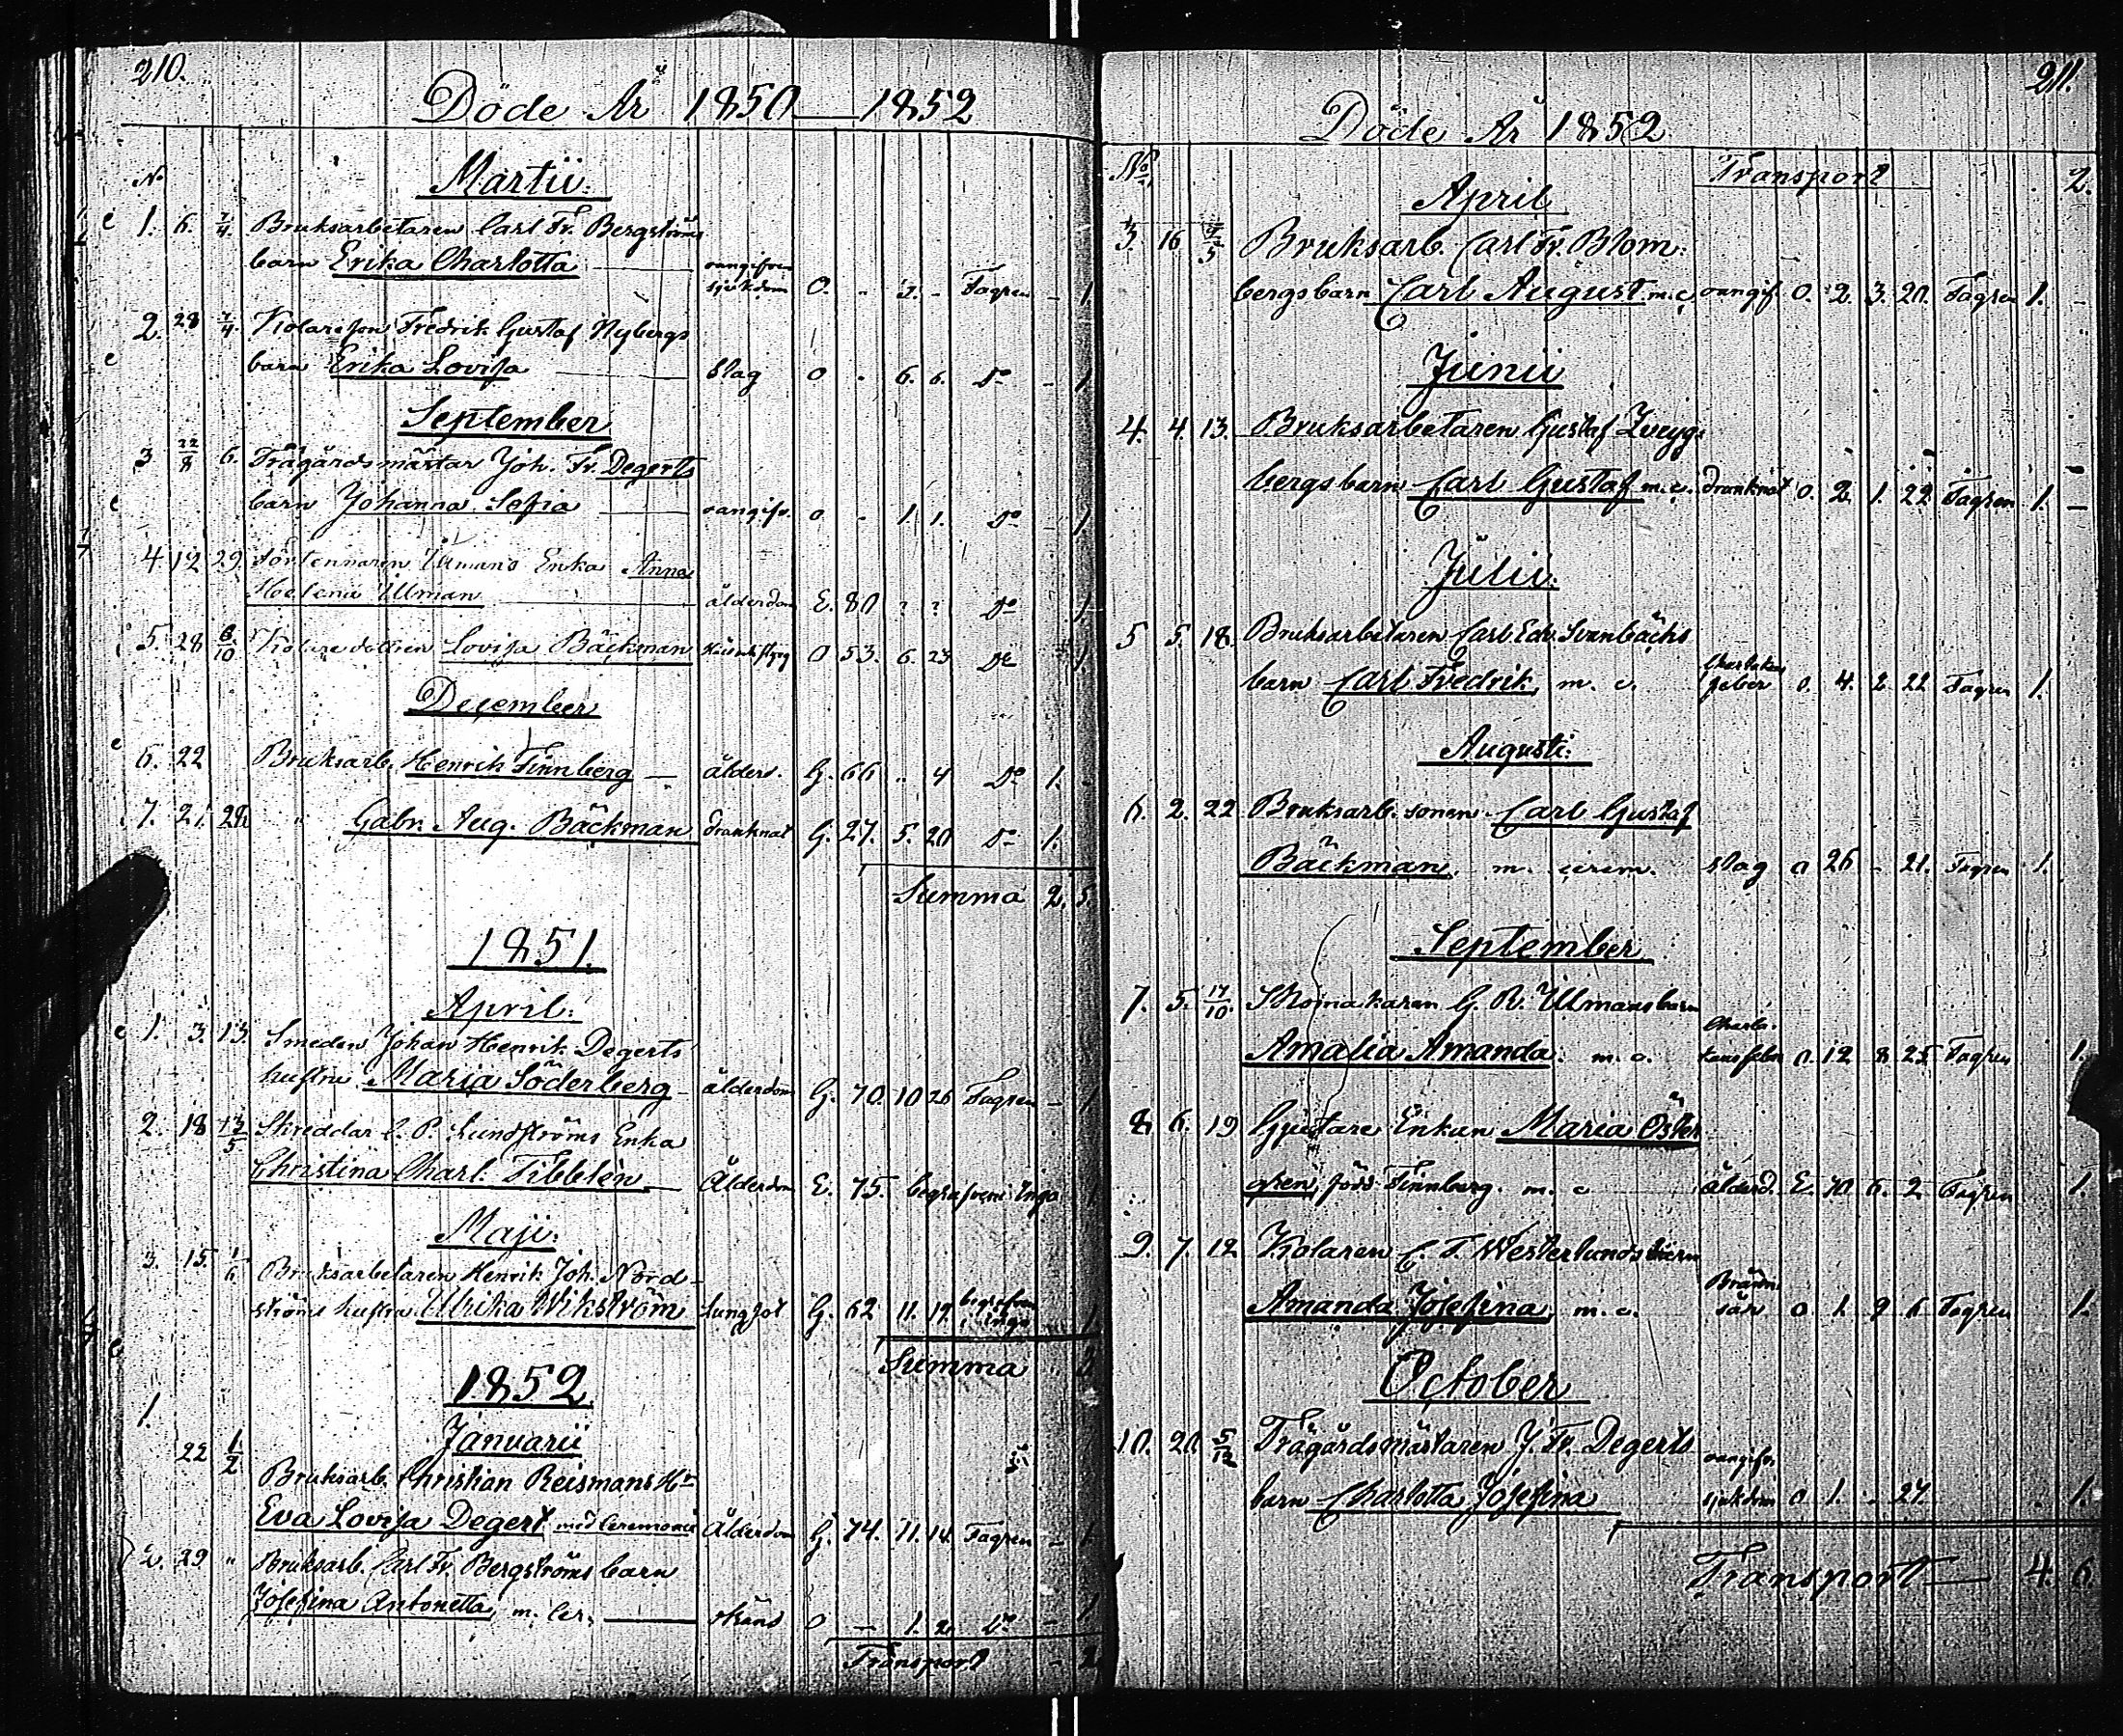 210.
Döde År 1850 — 1852
No
Martii.
1. 6. 7/4. Bruksarbetaren Carl Fr. Bergströms
barn Erika Charlotta oangifven sjukdom 0. " 2. - Fagren - 1.
2. 28 7/4. Kolaresson Fredrik Gustaf Nybergs
barn Erika Lovisa slag 0 - 6. 6. Do - 1.
September
3 22/8 6. Trägårdsmästar Joh. Fr. Degerts
barn Johanna Sofia oangifv. 0 - 1. 1. Do - 1.
4 12 29. Ulmans Enka Anna
Helena Ulman ålderdom E. 80 ? ? Do 1.
5. 28 6/10 Kolaredottren Lovisa Bäckman 0 53. 6. 23 Do 1.
December
6. 22 Bruksarb. Henrik Finnberg — ålderd. G. 66 " 4 Do 1. -
7. 21. 28. " Gabr. Aug. Bäckman drunknat G. 27. 5. 20 Do 1.
Summa 2. 5.
1851.
April.
1. 3. 13. Smeden Johan Henrik Degerts
hustru Maria Söderberg ålderdom G. 70. 10 26 Fagren - 1
2. 18 Skreddar C. P. Lundströms Enka
Christina Charl. Tibbelèn Ålderdom E. 75. begrafven i Ingo 1
Maji.
3. 15. 1/6 Bruksarbetaren Henrik Joh. Nord-
ströms hustru Ulrika Wikström Lungsot G. 62 11. 17. begrafven i Ingo 1.
Summa 3
1852.
1.
Januarii
22 1/2 Bruksarb. Christian Reismans Hu
Eva Lovisa Degert med Ceremonie Ålderdom G. 74. 11. 14. Fagren - 1
2. 29 " Bruksarb. Carl Fr. Bergströms barn
Josefina Antonetta, m. Cer. okänd 0 — 1. 2. Do - 1
Transport - 2
211.
Döde År 1852
No Transport 2.
April
3. 16 Bruksarb. Carl Fr. Blom-
bergs barn Carl August m. c. oangif. 0. 2. 3. 20. Fagren 1. -
Junii
4. 4. 13. Bruksarbetaren Gustaf Zveyg-
bergs barn Carl Gustaf m. c. drunknat 0. 2. 1. 22 Fagren 1. -
Julii.
5 5. 18. Bruksarbetaren Carl Edv. Svanbäcks
barn Carl Fredrik m. c. Charlakans feber 0. 4. 2 22 Fagren 1.
Augusti.
6. 2. 22 Bruksarb. sonen Carl Gustaf
Bäckman, m. cerem. slag 0 26 - 21. Fagren 1.
September
7. 5. 17/10. Skomakaren G. R. Ulmans barn
Amalia Amanda. m. c. Charla- kans feber 0. 12 8 25 Fagren 1.
8. 6. 19 Gjutare Enkan Maria Öster
gren, född Finnberg. m. c ålderd. E. 70 6. 2 Fagren 1.
9. 7. 12 Kolaren C. F. Westerlunds barn
Amanda Josefina, m. c. Brännsår 0 1. 9 6 Fagren 1.
October
10. 20. 5/12 Trägårdsmästaren J. Fr. Degerts
barn Charlotta Josefina oangifv. sjukdom 0 1. - 27. 1.
Transport — 4. 6.